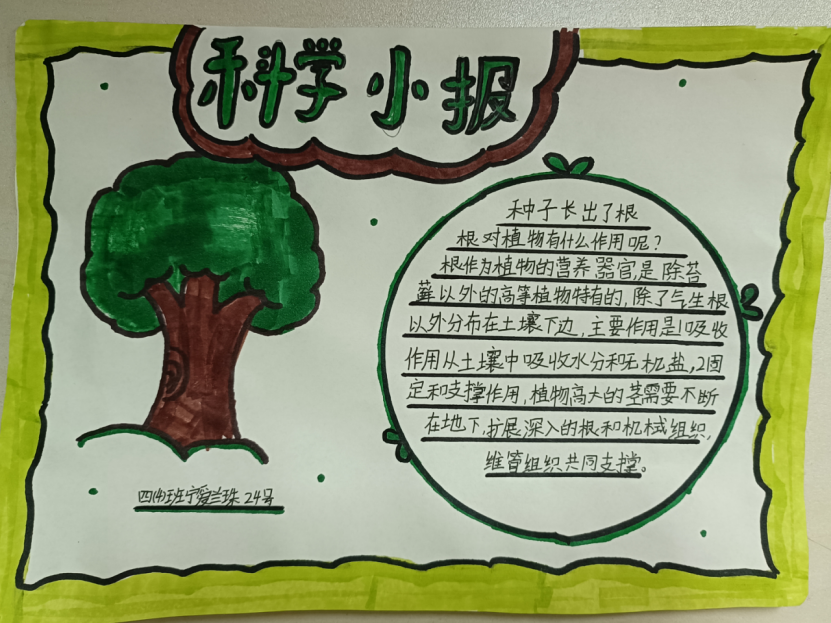 科学小报
种子长出了根
根对植物有什么作用呢?
根作为植物的营养器官,是除苔
藓以外的高等植物特有的,除了气生根
以外分布在土壤下边,主要作用是1吸收
作用从土壤中吸收水分和无机盐,2固
定和支撑作用,植物高大的茎需要不断
在地下,扩展深入的根和机械组织,
维管组织共同支撑。
四(4)班宁爱兰珠24号